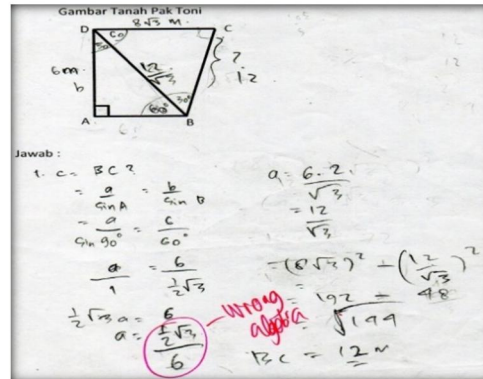 Gambar Tanah Pak Toni
8√3 m
D
60
C
6m
b
12
√3
?
12
60°
30°
A
B
Jawab :
1. c = BC ?
= a/sin A = b/sin B
= a/sin 90° = 6/60°
a/1 = 6/(½√3)
½√3 a = 6
a = ½√3/6
wrong algebra
a = 6.2/√3
= 12/√3
= (8√3)² - (12/√3)²
= 192 - 48
= √144
BC = 12 m